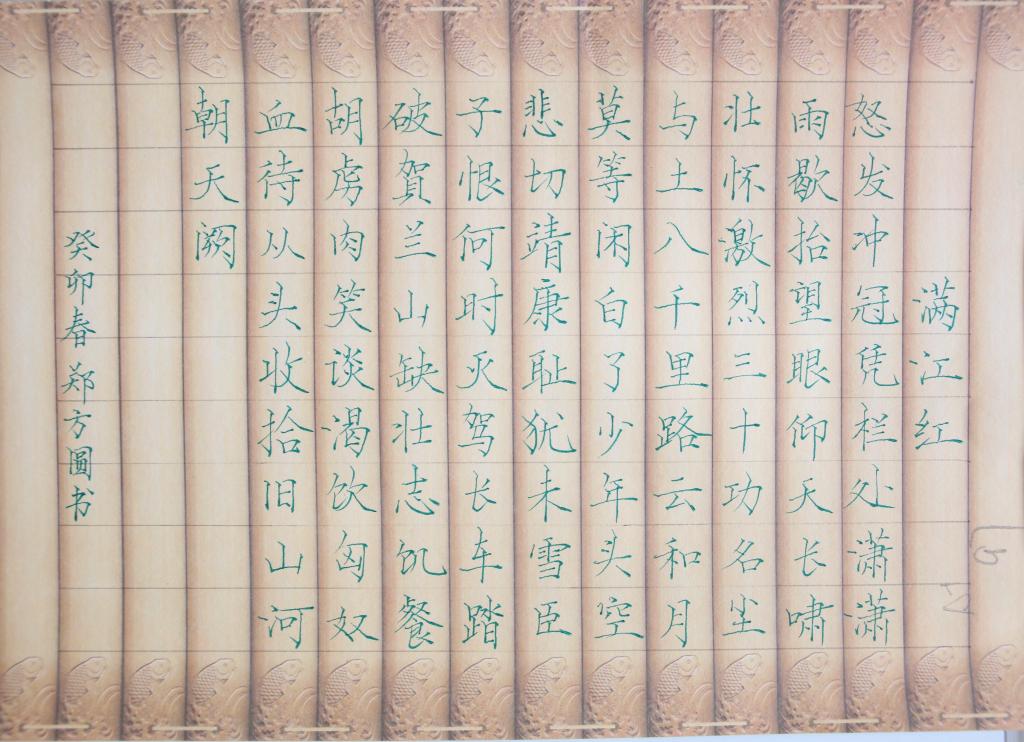 满江红
怒发冲冠凭栏处潇潇
雨歇抬望眼仰天长啸
壮怀激烈三十功名尘
与土八千里路云和月
莫等闲白了少年头空
悲切靖康耻犹未雪臣
子恨何时灭驾长车踏
破賀兰山缺壮志饥餐
胡虏肉笑谈渴饮匈奴
血待从头收拾旧山河
朝天阙
癸卯春郑方圖书